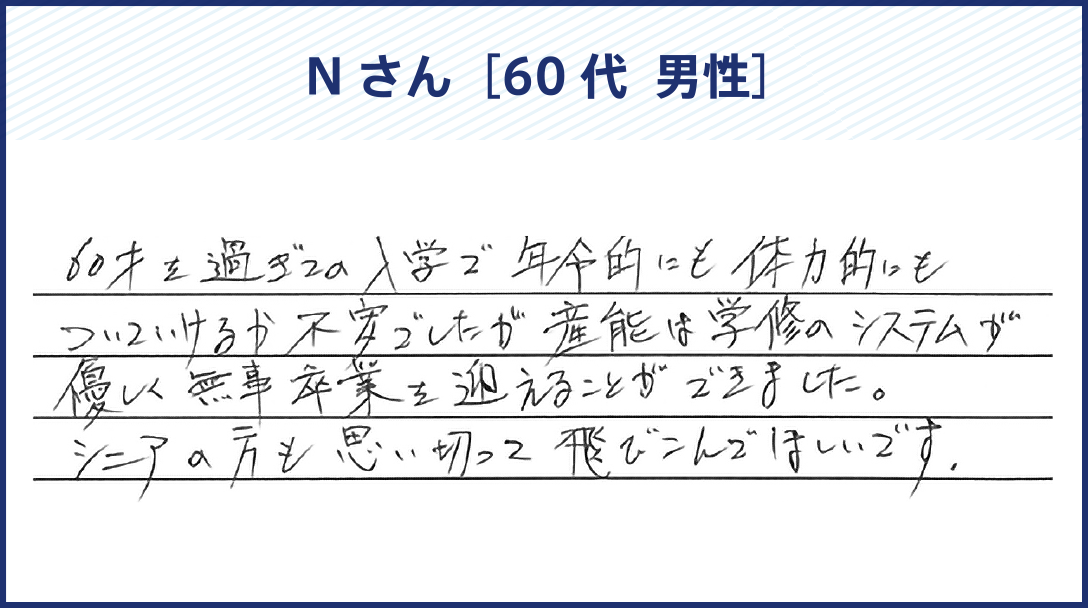 Nさん［60代 男性］
60才を過ぎての入学で年令的にも体力的にも
ついていけるか不安でしたが産能は学修のシステムが
優しく無事卒業を迎えることができました。
シニアの方も思い切って飛びこんでほしいです.